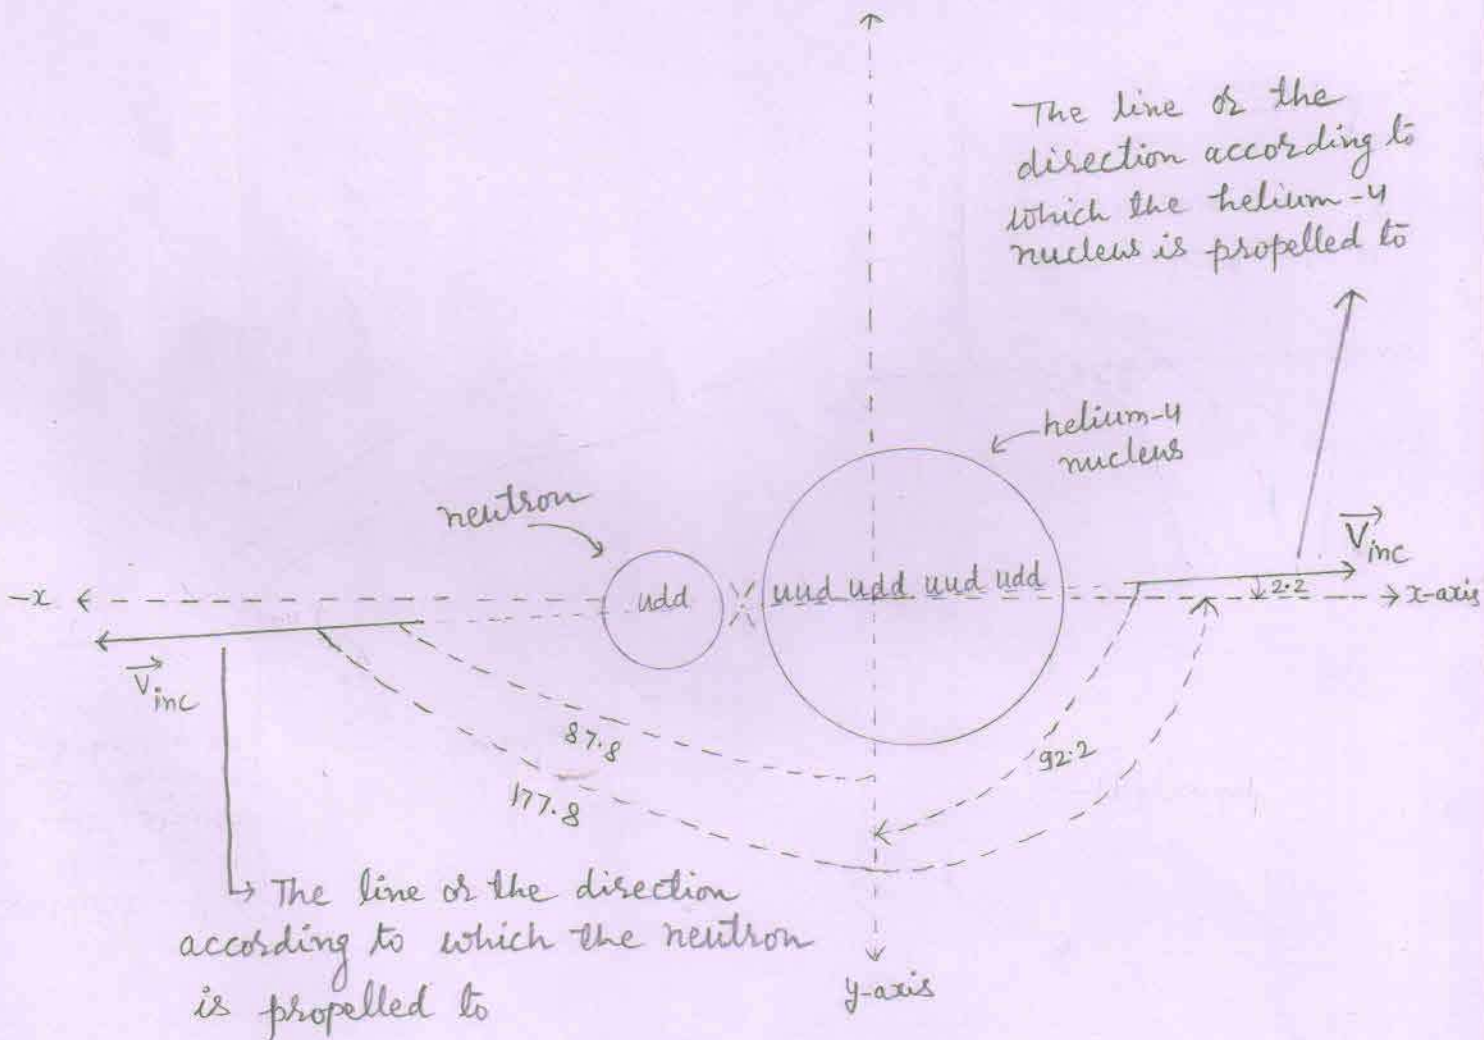 The line or the
direction according to
which the helium-4
nucleus is propelled to
helium-4
nucleus
neutron
udd
uud udd uud udd
V inc
2.2
-x
x-axis
V inc
87.8
92.2
177.8
The line or the direction
according to which the neutron
is propelled to
y-axis